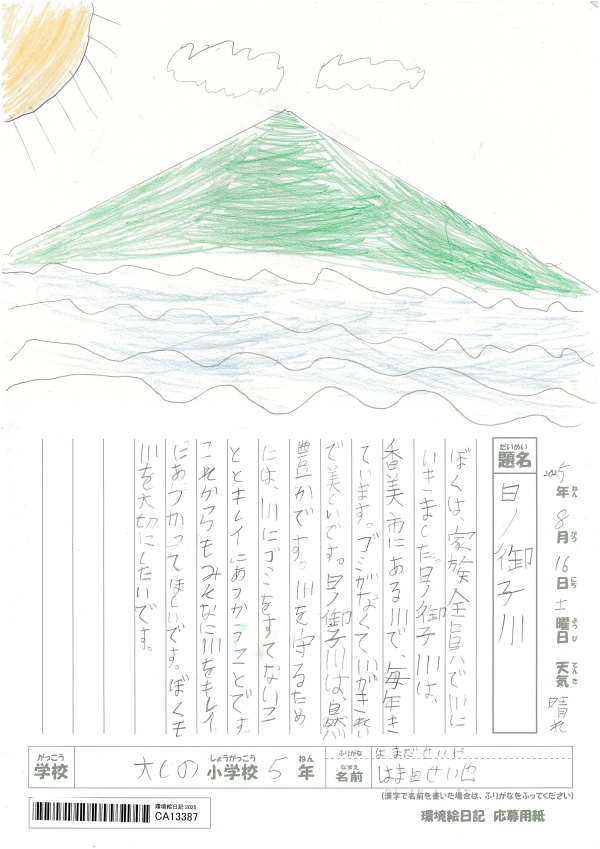 2025年8月16日土曜日 天気晴れ
ねん がつ にち ようび てんき
だいめい
題名
日ノ御子川
ぼくは、家族全員で川に
いきました。日ノ御子川は、
香美市にある川で、毎年き
ています。ゴミがなくて川がきれい
で美しいです。日ノ御子川は、自然が
豊かです。川を、守るため
には、川にゴミをすてないこ
ととキレイにあつかうことです。
これからもみんなに川をキレイ
にあつかってほしいです。ぼくも
川を大切にしたいです。
がっこう しょうがっこう ねん
学校 大しの 小学校 5年
ふりがな はまだせいや
なまえ
名前 はま田せい也
(漢字で名前を書いた場合は、ふりがなをふってください)
環境絵日記 2025
CA13387
環境絵日記 応募用紙